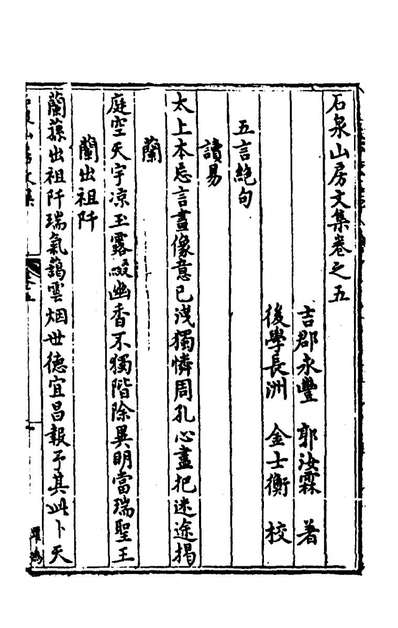 石泉山房文集卷之五
吉郡永豐 郭汝霖 著
後學長洲 金士衡 校
五言絶句
讀易
太上本忘言畫像意已洩獨憐周孔心盡把迷途揭
蘭
庭空天宇凉玉露綴幽香不獨階除異明當瑞聖王
蘭出祖阡
蘭蓀出祖阡瑞氣藹雲烟世德宜昌報于其此卜天